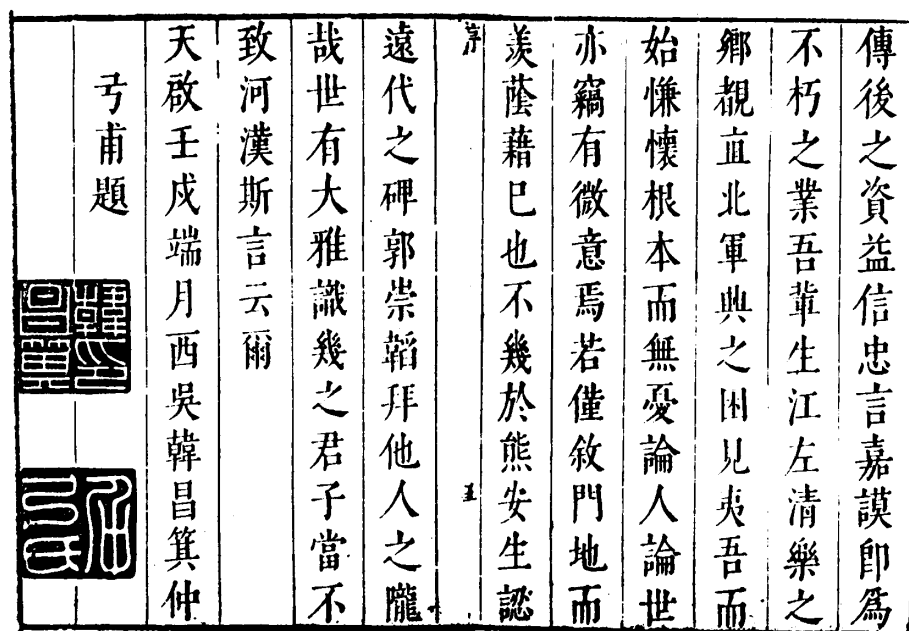 傳後之資益信忠言嘉謨卽爲
不朽之業吾輩生江左清樂之
鄉覩直北軍興之困見夷吾而
始慊懷根本而無憂論人論世
亦竊有微意焉若僅敘門地而
羨蔭藉已也不幾於熊安生認
序 五
遠代之碑郭崇韜拜他人之隴
哉世有大雅識幾之君子當不
致河漢斯言云爾
天啟壬戌端月西吳韓昌箕仲
弓甫題